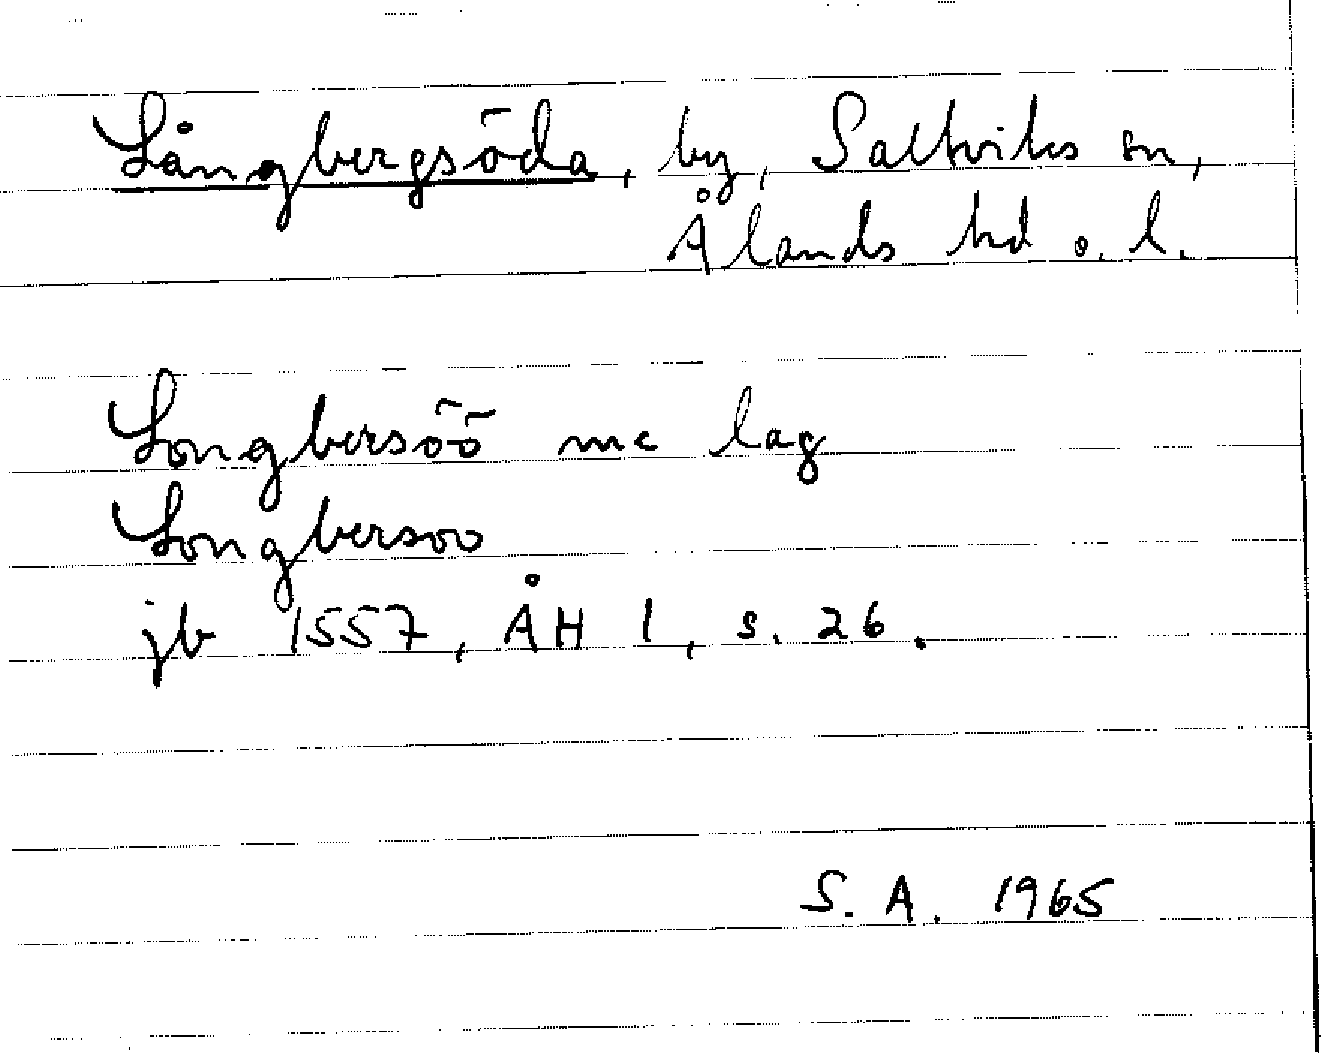 Långbergsöda, by, Saltviks sn,
Ålands hd o. l.
Longbersöö me lag
Longbersoo
jb 1557, ÅH 1, s. 26.
S. A. 1965